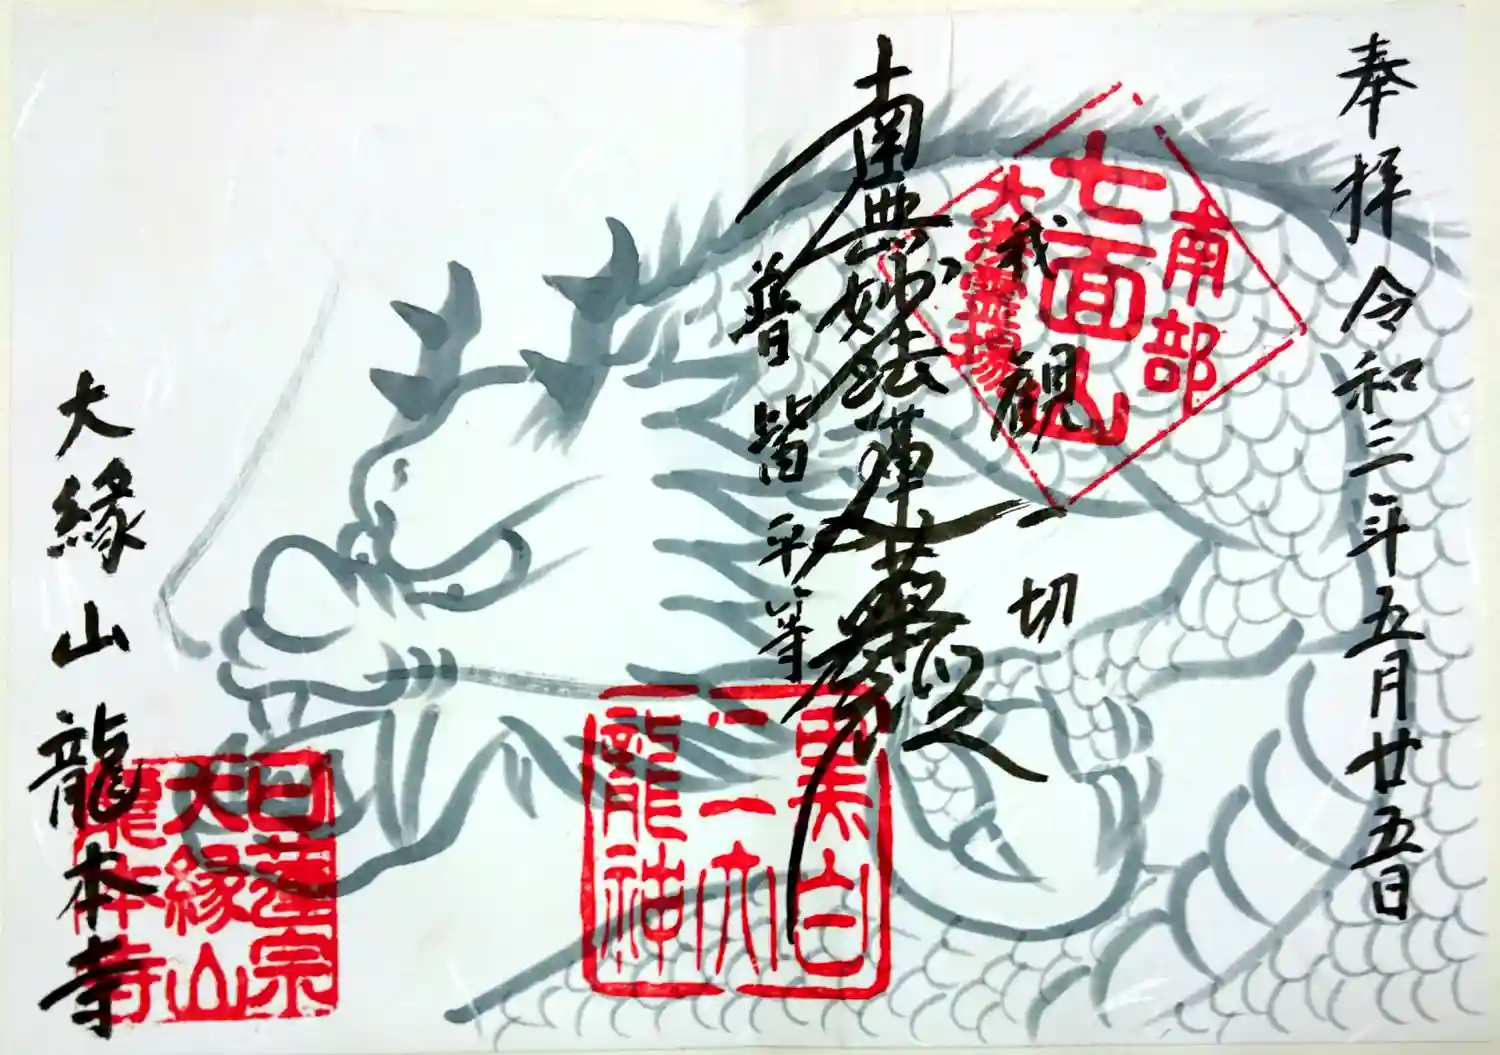 奉拝 令和三年五月廿五日
南部
七面山
我観一切
南無妙法蓮華経
普皆平等
黒白
二大
龍神
大縁山龍本寺
日蓮宗
大縁山
龍本寺